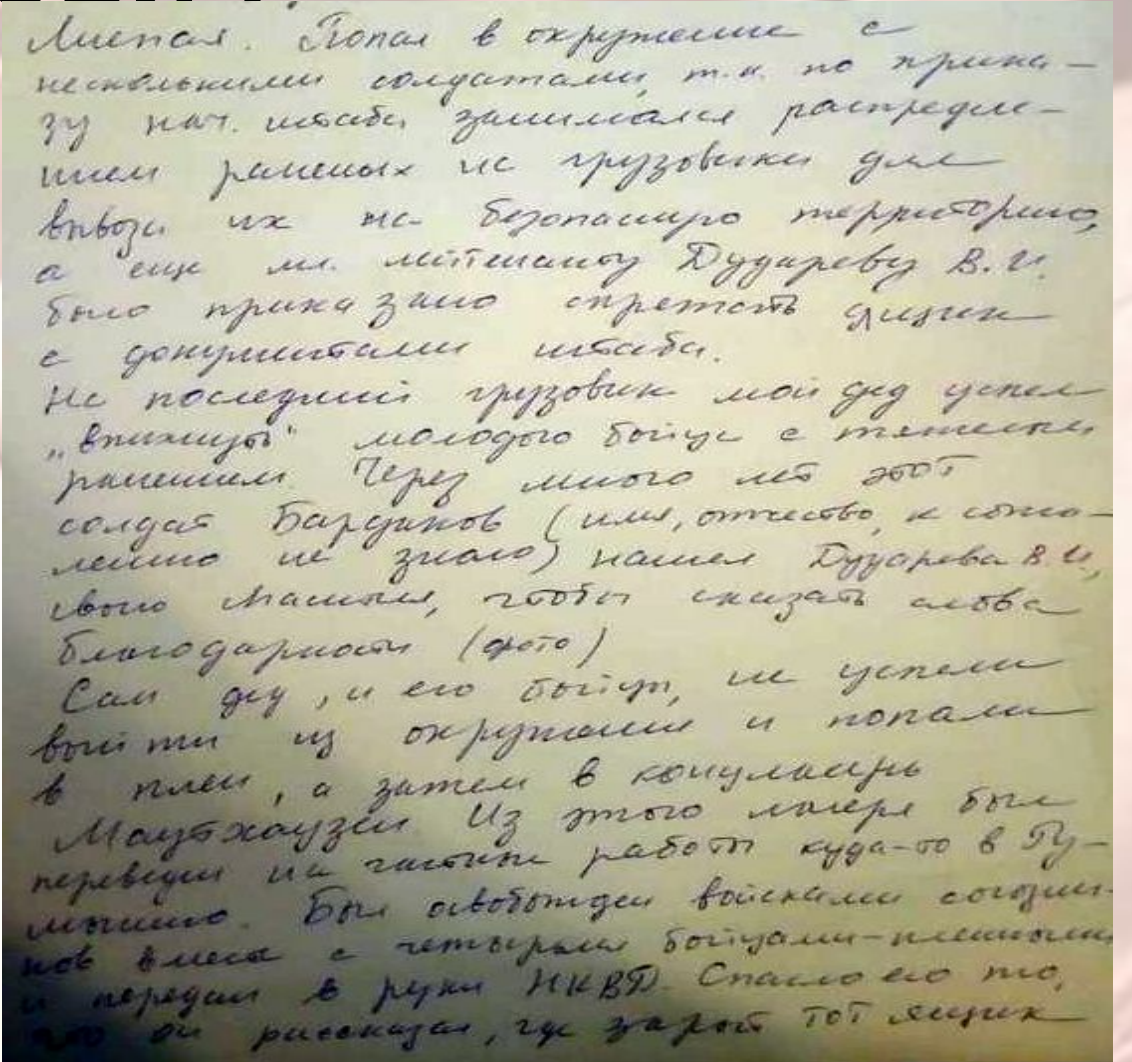 Лиепая. Попал в окружение с
несколькими солдатами, т.к. по прика-
зу нач. штаба занимался распределе-
нием раненых на грузовики для
вывоза их на безопасную территорию,
а еще мл. лейтенанту Дудареву В.И.
было приказано спрятать ящик
с документами штаба.
На последний грузовик мой дед успел
„впихнуть" молодого бойца с тяжелым
ранением. Через много лет этот
солдат Бардуков (имя, отчество, к сожа-
лению не знаю) нашел Дударева В.И.,
своего , чтобы сказать слова
благодарности (фото)
Сам дед, и его бойцы, не успели
выйти из окружения и попали
в плен, а затем в концлагерь
Маутхаузен. Из этого лагеря был
переведен на частные работы куда-то в Ру-
мынию. Был освобожден войсками союзни-
ков вместе с четырьмя бойцами-пленными
и передан в руки НКВД. Спасло его то,
что он рассказал, где зарыт тот ящик